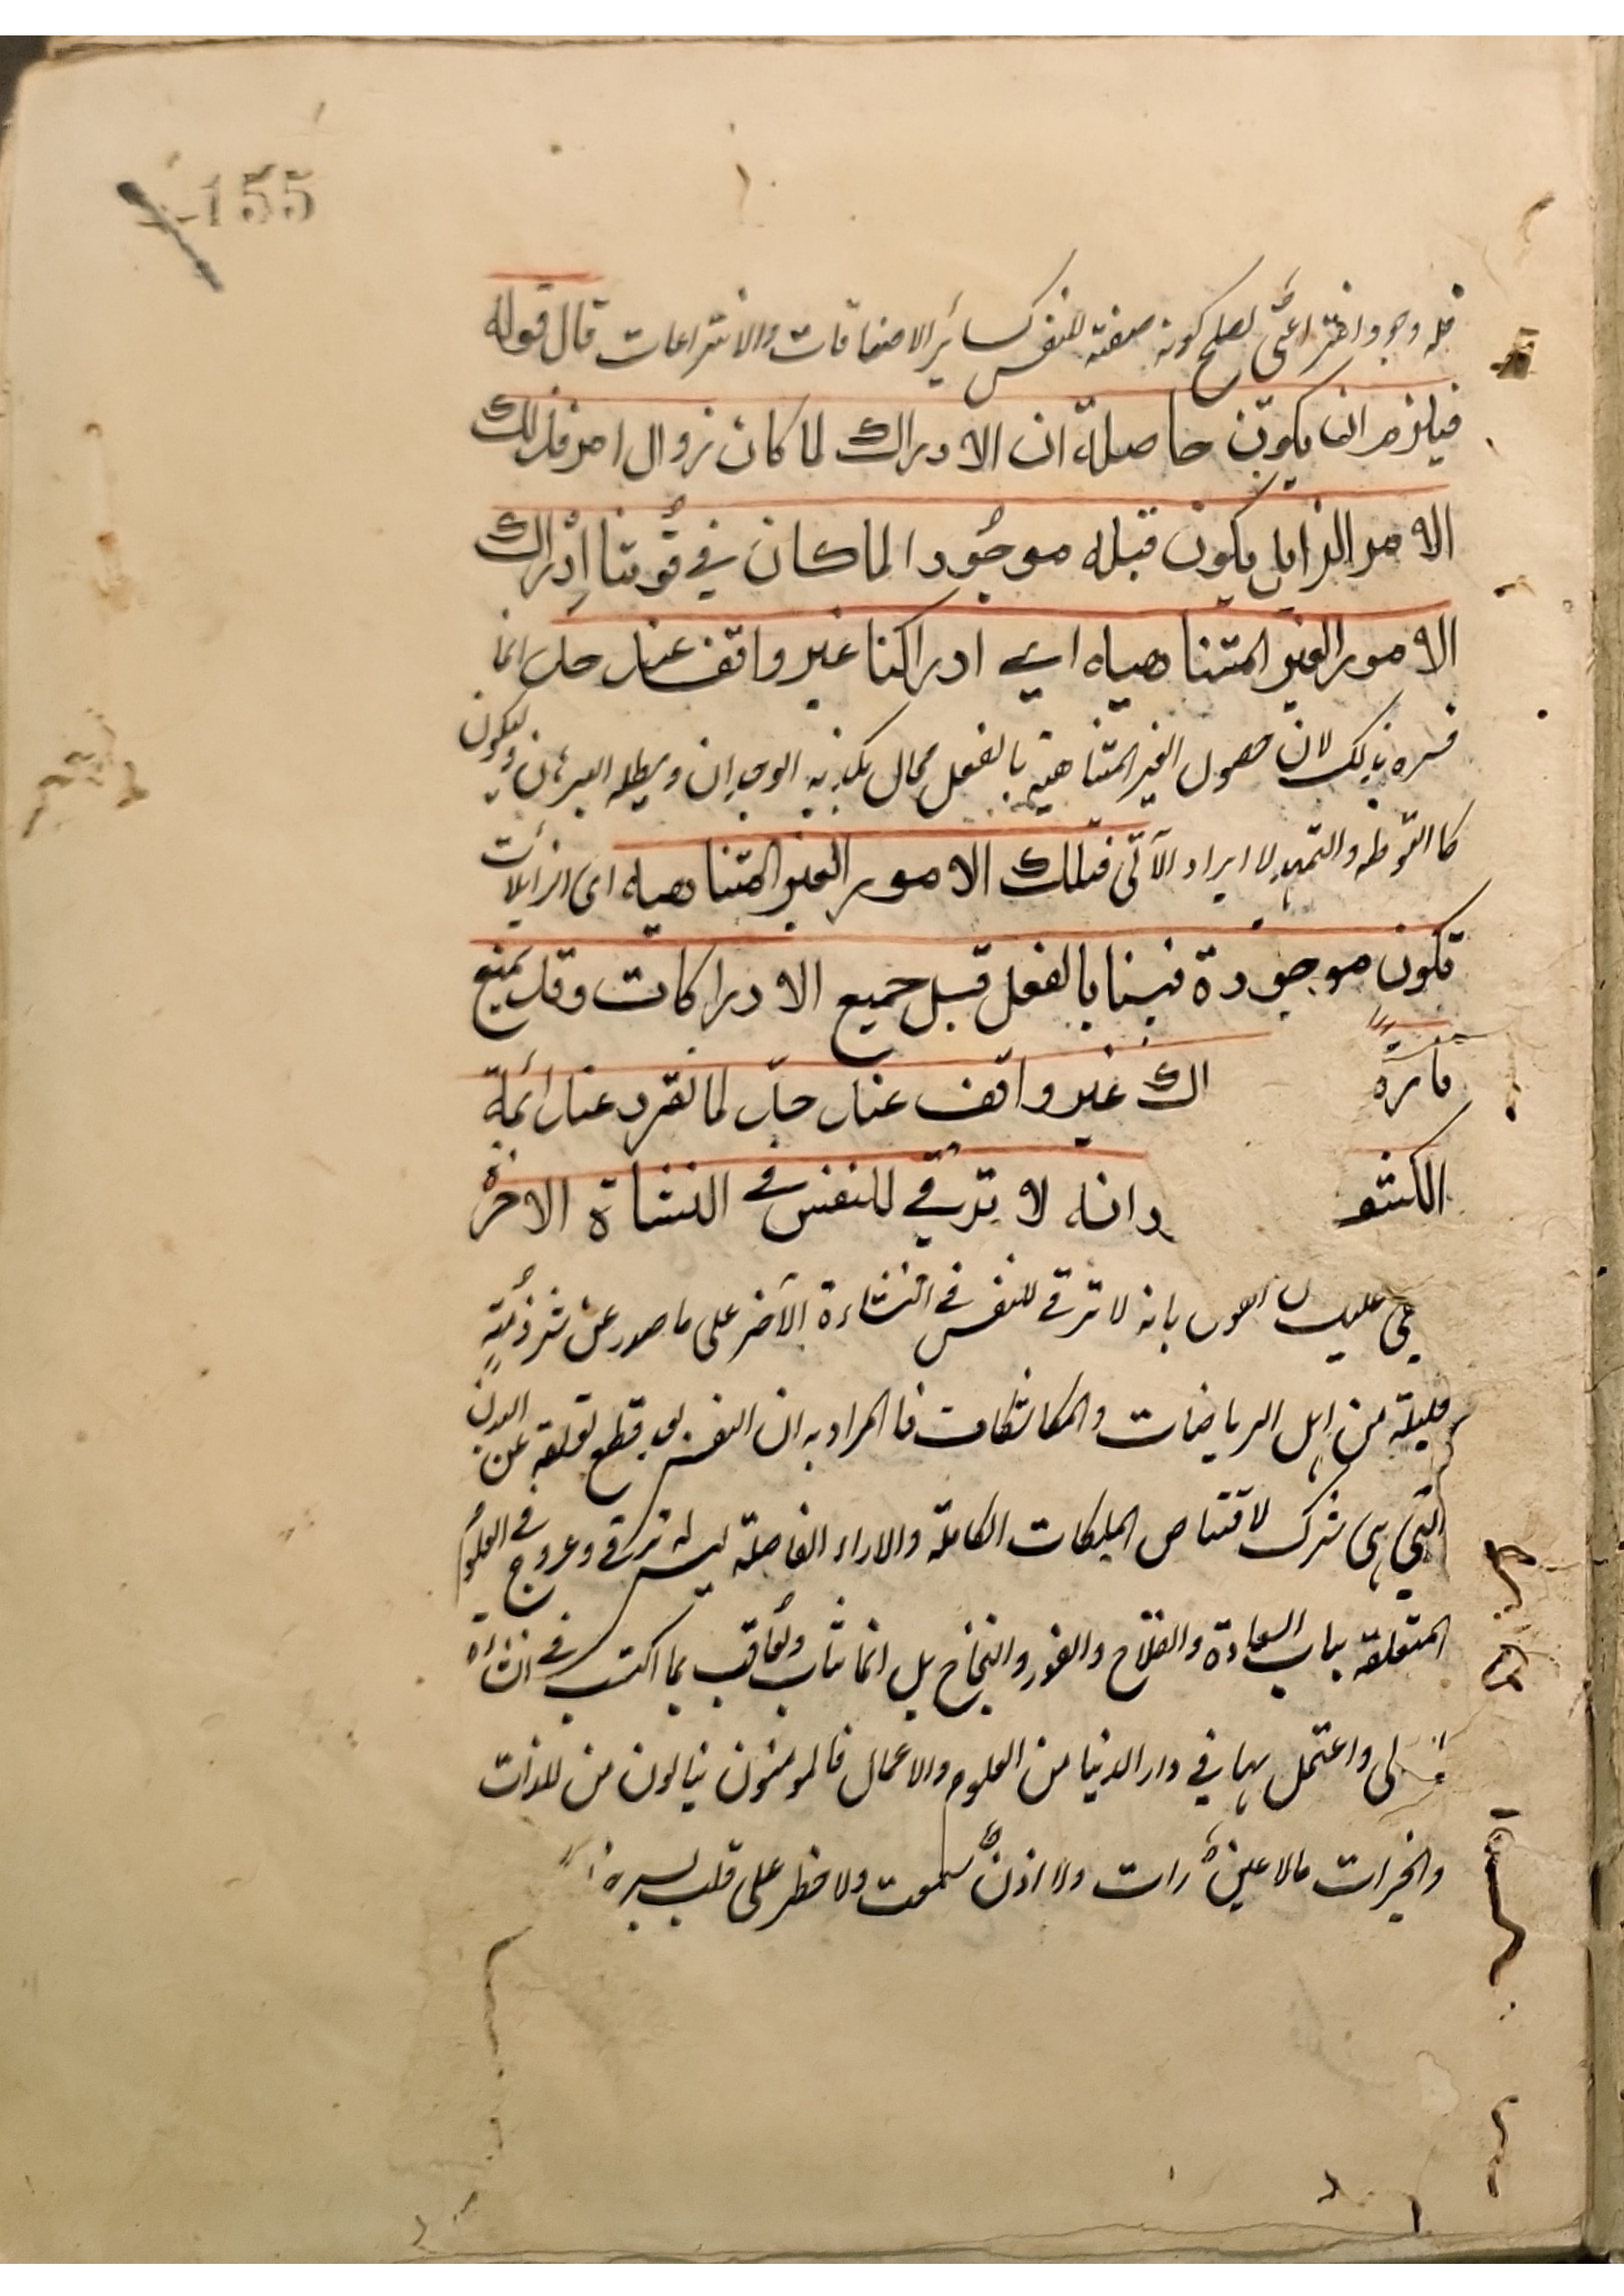 155
فله وجود اختراعي يصلح كونه صفته للنفس كسائر الاضافات والانتزاعات قال قوله
فيلزم ان يكون حاصله ان الادراك لما كان زوال امر فذلك
الامر الزايل يكون قبله موجودا لما كان في قوتنا ادراك
الامور الغير المتناهيه اي ادراكنا غير واقف عند حد انما
فسره بذلك لان حصول الغير المتناهية بالفعل محال يكذبه الوجدان ويبطله البرهان وليكون
كالتوطه والتمهيد لا ايراد الآتى فتلك الامور الغير المتناهيه اى الزايلات
تكون موجودة فينا بالفعل قبل جميع الادراكات وقد يمنع
اك غير واقف عند حد لما تقرر عند ائمة
الكشف وانه لا ترقي للنفس في النشاة الاخرة
بانه لا ترقي للنفس في النشاءة الآخر على ما صدر عن شرذمة
قليلة من اهل الرياضات والمكاشفات فالمراد به ان النفس بعد قطع تعلقه عن البدن
التي هي شرك لاقتناص الملكات الكاملة والاراء الفاضلة ليس له ترقي وعروج في العلوم
المتعلقه بباب السعادة والفلاح والفوز والنجاح بل انما يثاب ويعاقب بما اكتسب في النشاءة
لى واعتمل بها في دار الدنيا من العلوم والاعمال فالمومنون ينالون من للذات
والخيرات مالا عين رات ولا اذن سمعت ولا خطر على قلب